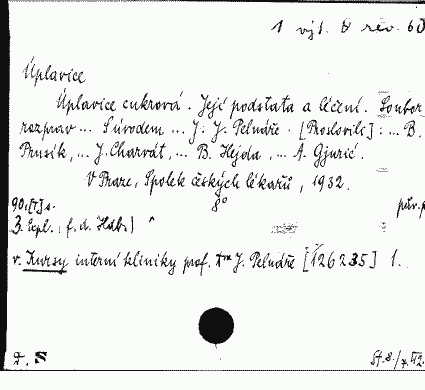 1 výt.
Úplavice
Úplavice cukrová. Její podstata a léčení. Soubor
rozprav ... S úvodem ... J. J. Pelnáře. [Proslovili]: ... B.
Prusík, ... J. Charvát, ... B. Hejda, ... A. Gjurić.
V Praze, Spolek českých lékařů, 1932.
8°
v. Kursy interní kliniky prof. Dra J. Pelnáře [126235] 1.
D. S